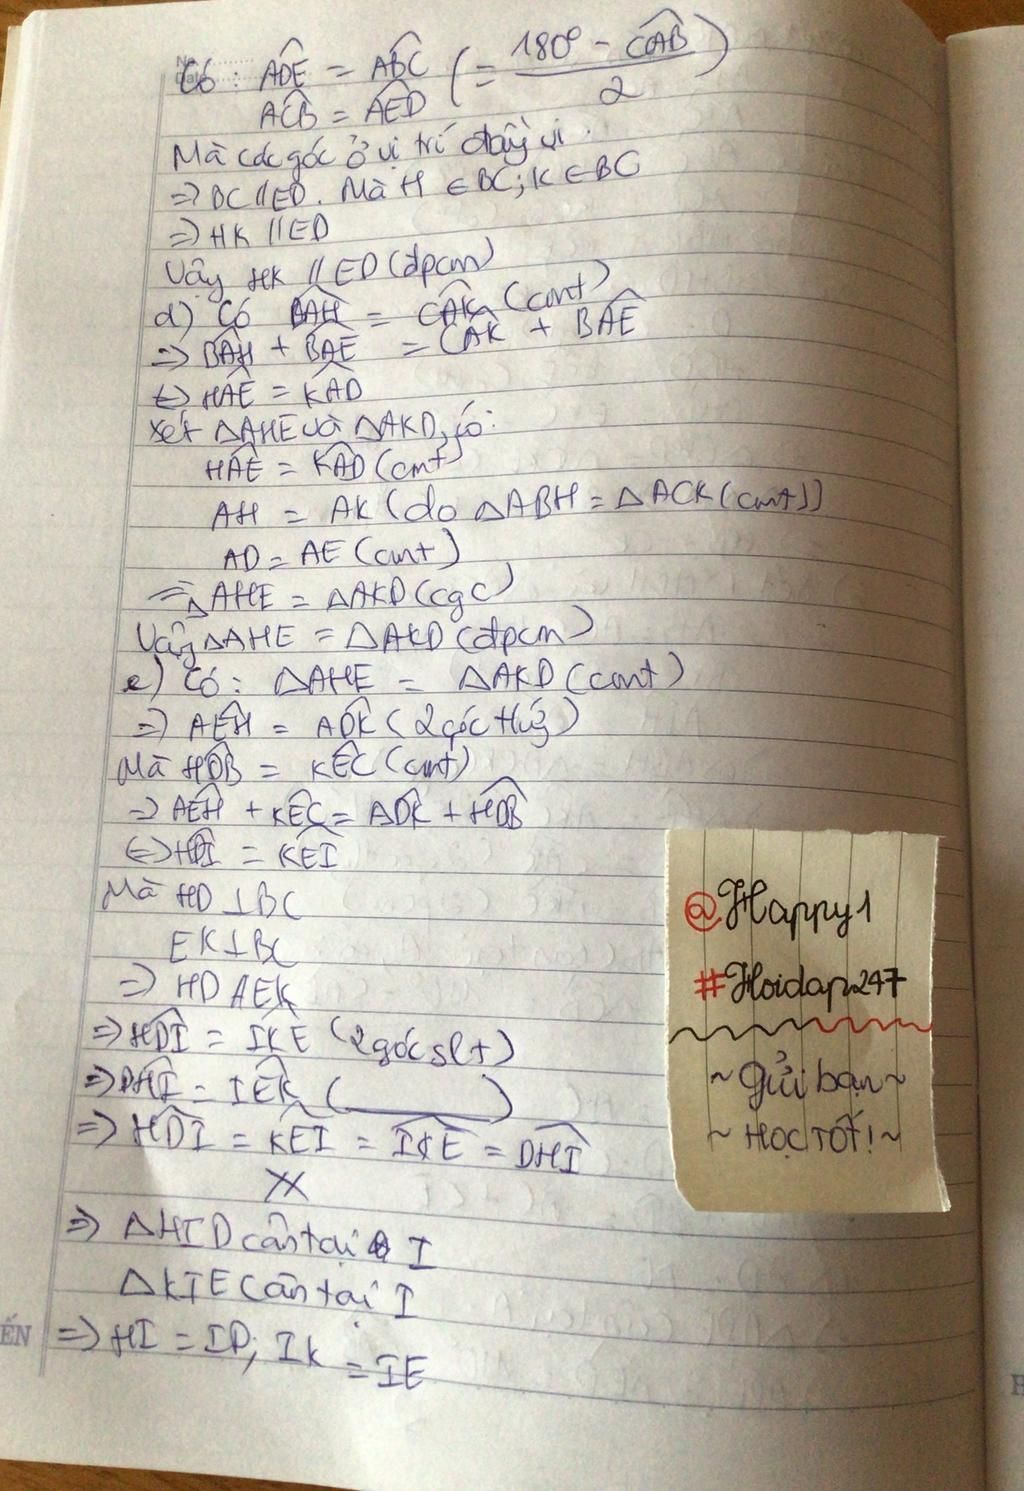 Có: ADE = ABC (= 180° - CAB / 2)
ACB = AED
Mà các góc ở vị trí đồng vị.
=> BC // ED. Mà H ∈ BC; K ∈ BC
=> HK // ED
Vậy HK // ED (đpcm)
d) Có BAH = CAK (cmt)
=> BAH + BAE = CAK + BAE
<=> HAE = KAD
Xét ΔAHE và ΔAKD, có:
HAE = KAD (cmt)
AH = AK (do ΔABH = ΔACK (cmt))
AD = AE (cmt)
=> ΔAHE = ΔAKD (cgc)
Vậy ΔAHE = ΔAKD (đpcm)
e) Có: ΔAHE = ΔAKD (cmt)
=> AEH = ADK (2 góc tứ)
Mà HDB = KEC (cmt)
=> AEH + KEC = ADK + HDB
<=> HDI = KEI
Mà HD ⊥ BC
EK ⊥ BC
=> HD // EK
=> HDI = IKE (2 góc slt)
=> DHI = IEK ( )
=> HDI = KEI = IKE = DHI
=> ΔHID cân tại I
ΔKIE cân tại I
=> HI = ID; IK = IE
@Happy1
#Hoidap247
~ Gửi bạn ~
~ HỌC TỐT! ~
ẾN